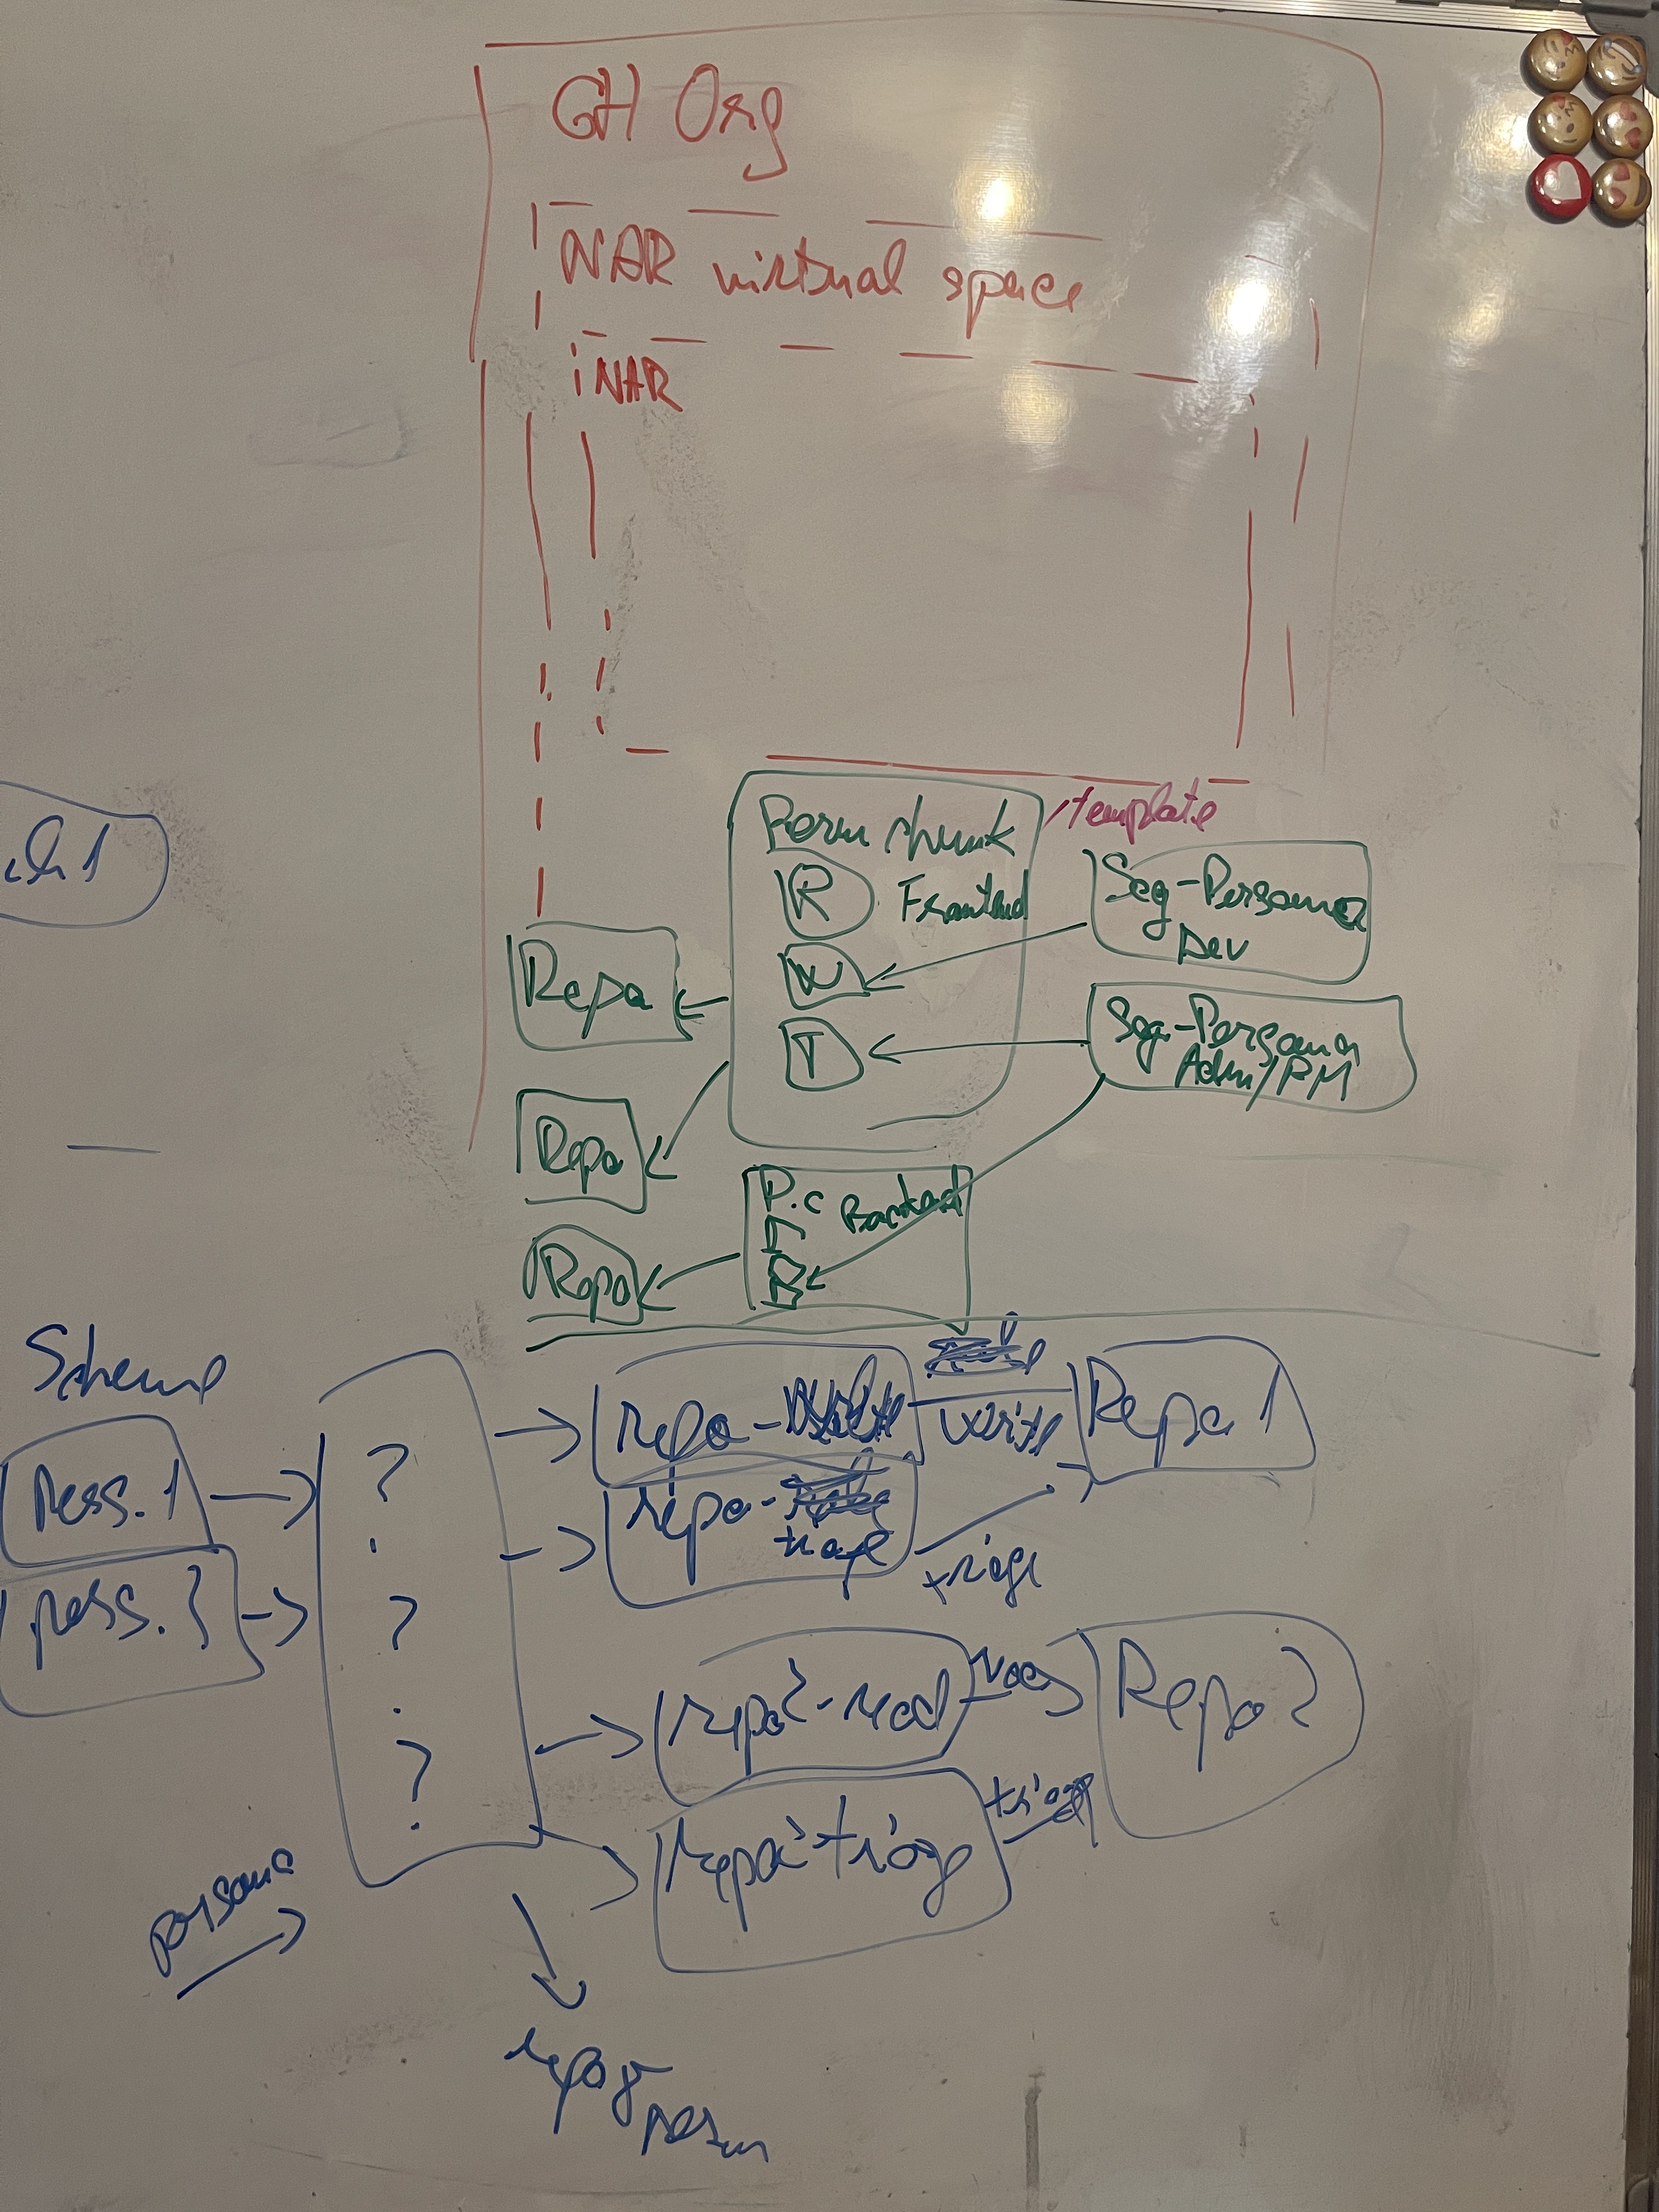 GH Org
NAR virtual space
iNAR
template
Perm chunk
R Frontend
W
T
Seg-Persona
Dev
Seg-Persona
Adm/PM
Repo
Repo
Repo
P.c Backend
ch 1
Scheme
Pers. 1
pers. 2
?
?
?
repo-write
write
Repo 1
repo-
triage
triage
repo2-read
Repo 2
repo2 triage
triage
persona
perm